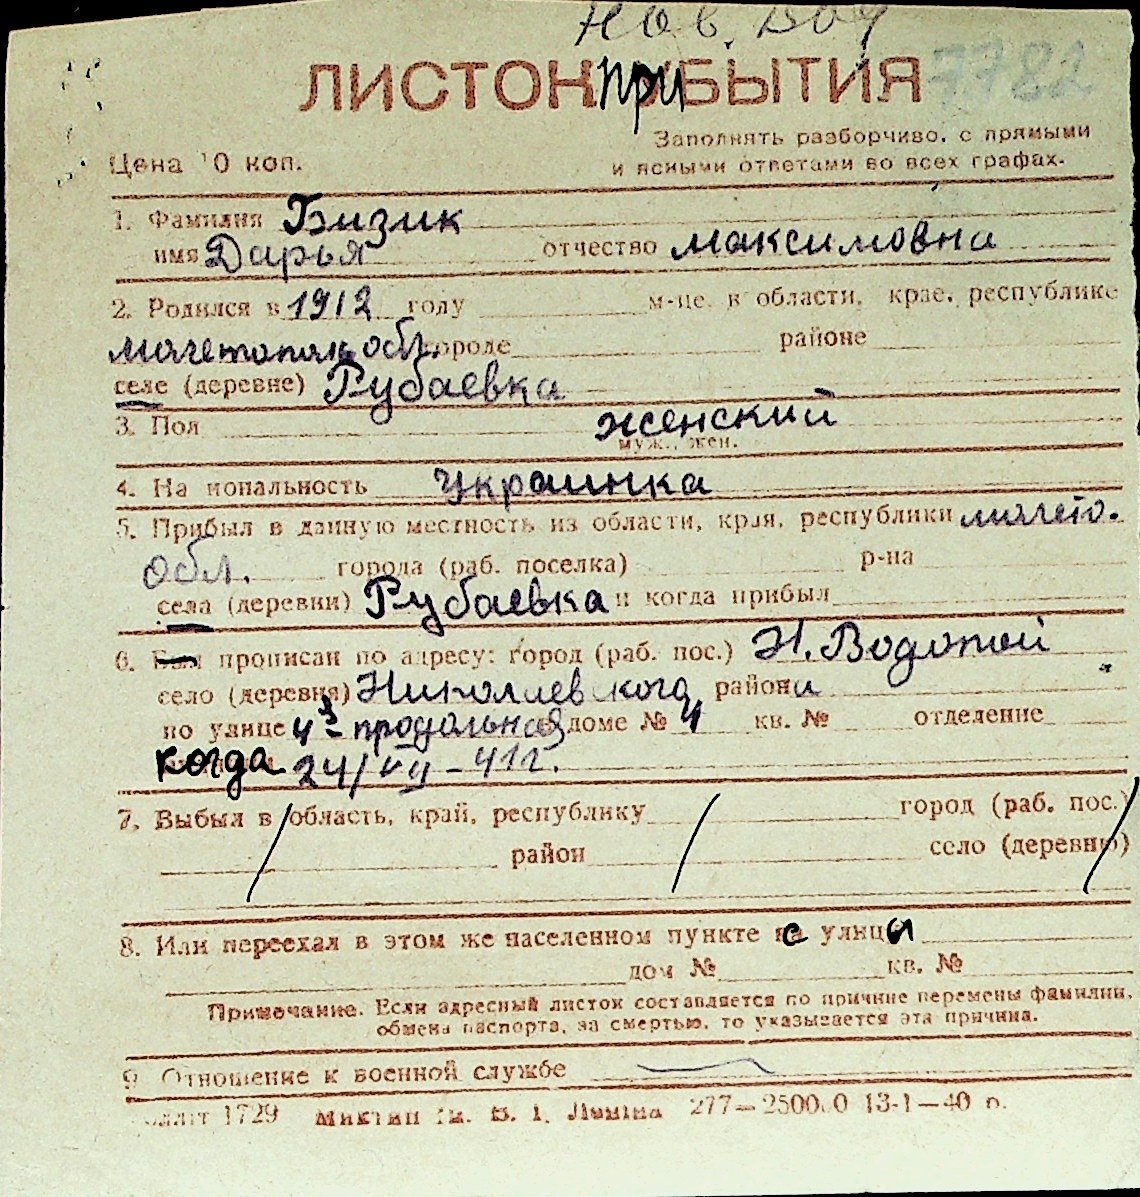 Нов. Вод
ЛИСТОК при БЫТИЯ 7782
Заполнять разборчиво, с прямыми
Цена 10 коп. и ясными ответами во всех графах.
1. Фамилия Бизик
имя Дарья отчество Максимовна
2. Родился в 1912 году м-це, в области, крае, республике
обл. городе районе
селе (деревне) Рубаевка
3. Пол женский
муж., жен.
4. Национальность украинка
5. Прибыл в данную местность из области, края, республики
обл. города (раб. поселка) р-на
села (деревни) Рубаевка и когда прибыл
6. прописан по адресу: город (раб. пос.) Н. Водопой
село (деревня) Николаевского района
по улице 4я продольная доме № 4 кв. № отделение
когда 24/VII-41г.
7. Выбыл в область, край, республику город (раб. пос.)
район село (деревню)
8. Или переехал в этом же населенном пункте с улицы
дом № кв. №
Примечание. Если адресный листок составляется по причине перемены фамилии,
обмена паспорта, за смертью, то указывается эта причина.
9. Отношение к военной службе
1729 277—250000 13-1—40 р.